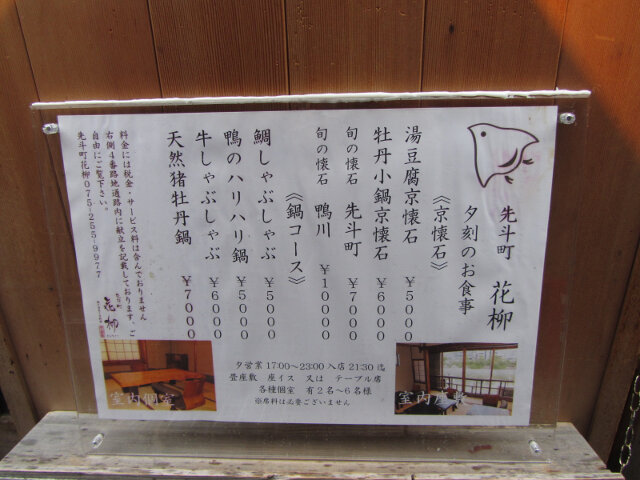 先斗町 花柳
夕刻のお食事
《京懐石》
湯豆腐京懐石 ¥5000
牡丹小鍋京懐石 ¥6000
旬の懐石 先斗町 ¥7000
旬の懐石 鴨川 ¥10000
《鍋コース》
鯛しゃぶしゃぶ ¥5000
鴨のハリハリ鍋 ¥5000
牛しゃぶしゃぶ ¥6000
天然猪牡丹鍋 ¥7000
料金には税金・サービス料は含んでおりません
右側4番路地通路内に献立を記載しております、ご
自由にご覧下さい。
先斗町花柳075-255-9977
花柳
夕営業 17:00~23:00 入店 21:30 迄
畳座敷 座イス 又は テーブル席
各種個室 有2名~6名様
※席料は必要ございません
室内個室
室内座敷